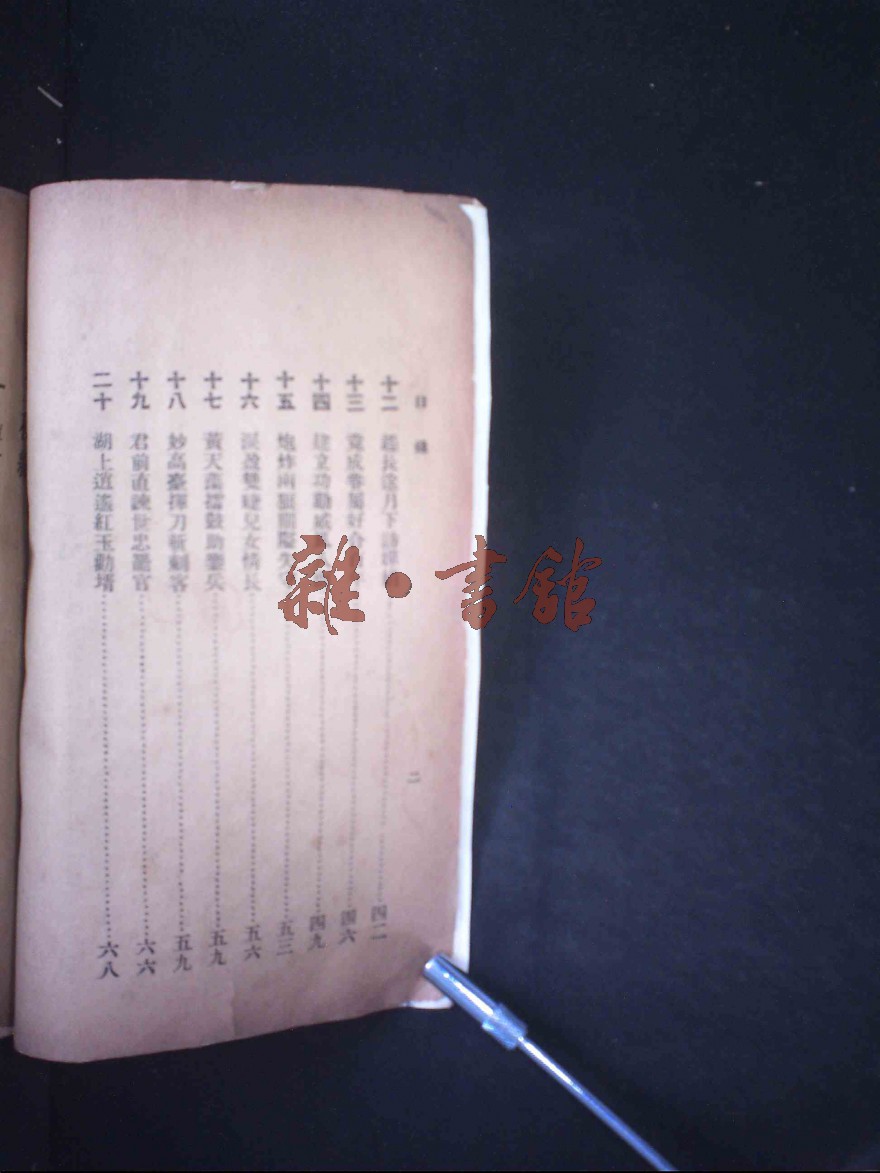 目錄
十二 月下 四二
十三 竟成眷屬好 四六
十四 建立功勳 四九
十五 炮炸兩狼關 五三
十六 淚盈雙睫兒女情長 五六
十七 黃天蕩擂鼓助鏖兵 五九
十八 妙高臺揮刀斬刺客 五九
十九 君前直諫世忠罷官 六六
二十 湖上逍遙紅玉勸壻 六八
二
雜·書館